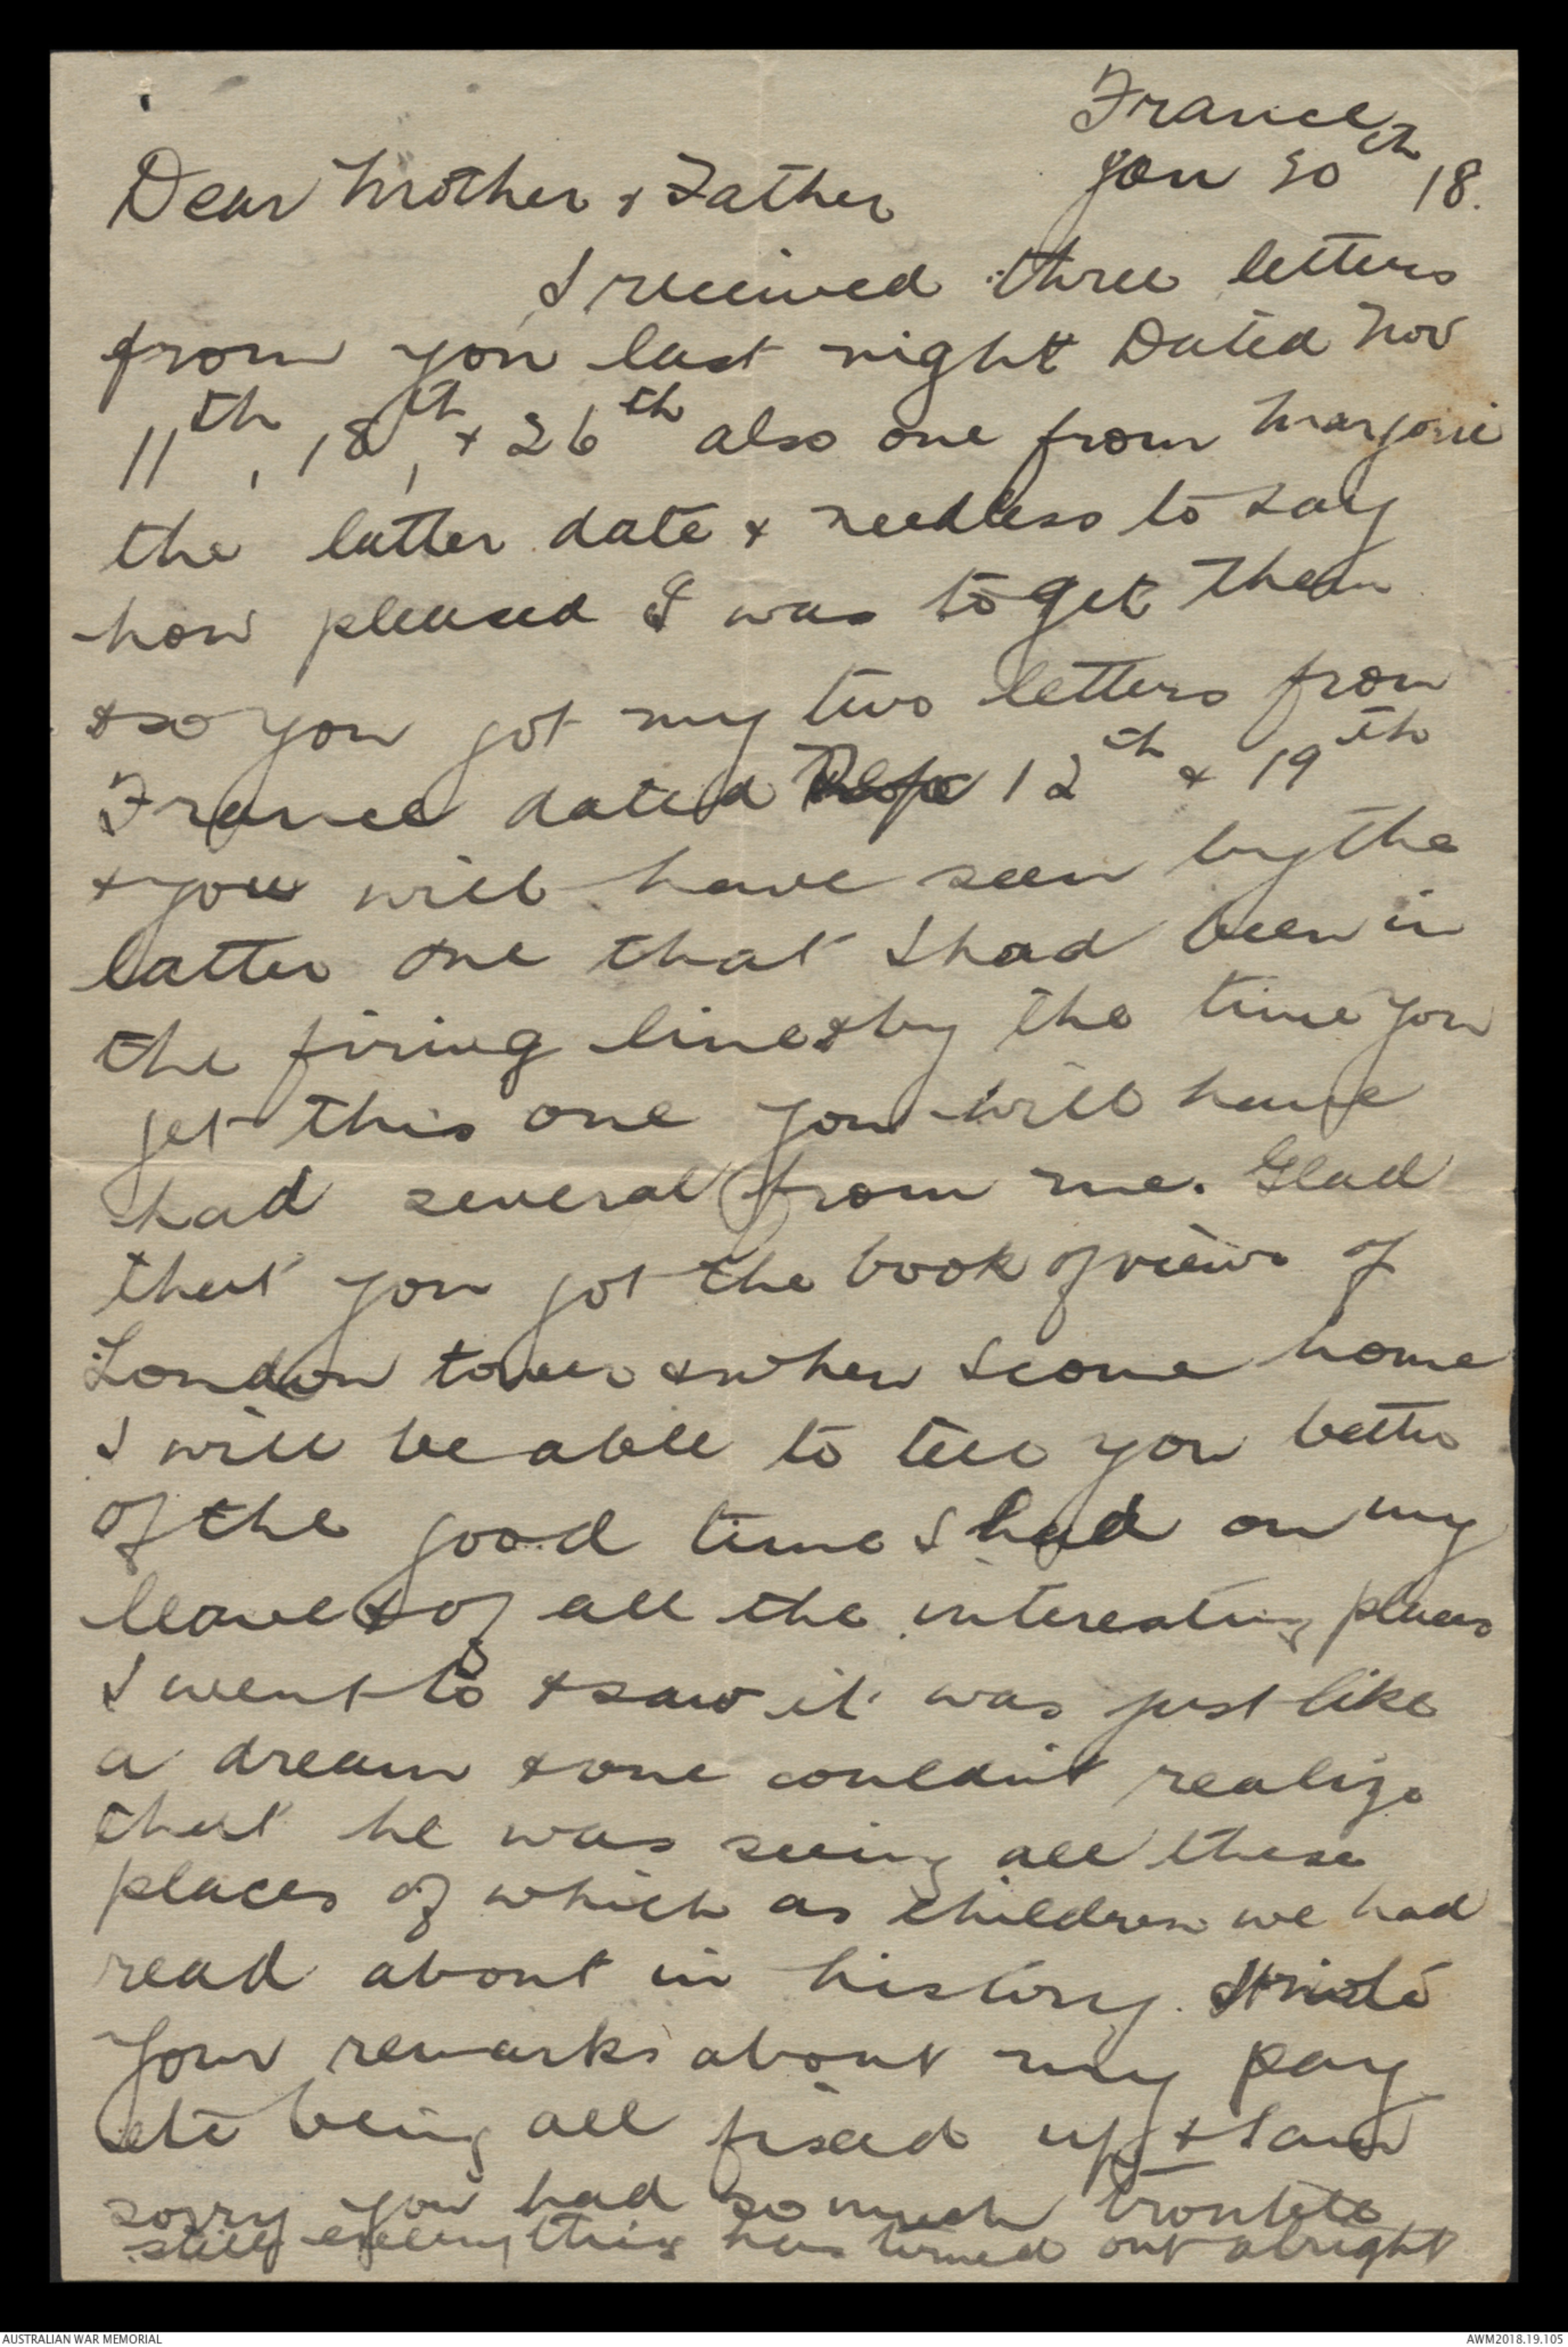 France
Jan 30th 18.
Dear Mother & Father
I received three letters
from you last night Dated Nov
11th, 18th, & 26th also one from Marjorie
the latter date & needless to say
how pleased I was to get them
& so you got my two letters from
France dated 12th & 19th
& you will have seen by the
latter one that I had been in
the firing line & by the time you
get this one you will have
had several from me. Glad
that you got the book of views of
London tower & when I come home
I will be able to tell you better
of the good time I had on my
leave & of all the interesting places
I went to & saw it was just like
a dream & one couldn't realize
that he was seeing all these
places of which as children we had
read about in history. I note
your remarks about my pay
etc being all fixed up & I am
sorry you had so much trouble
still everything has turned out alright
AUSTRALIAN WAR MEMORIAL
AWM2018.19.105